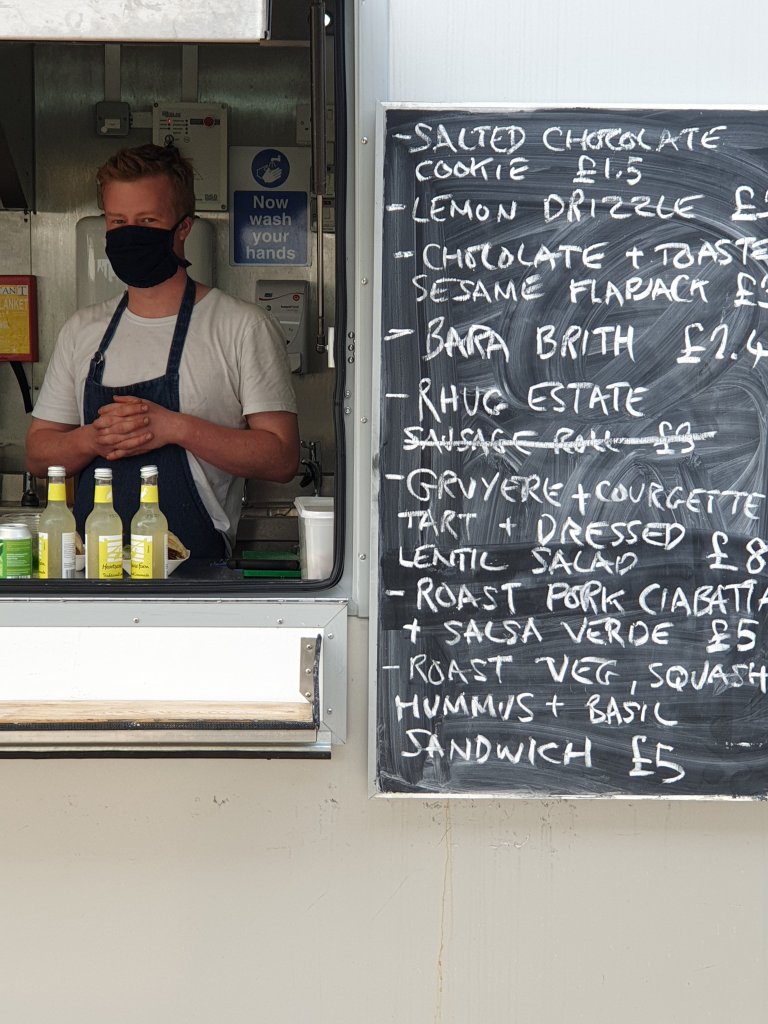 Now
wash
your
hands
ANT
LANKET
- SALTED CHOCOLATE
COOKIE £1.5
- LEMON DRIZZLE £
- CHOCOLATE + TOASTE
SESAME FLAPJACK £
- BARA BRITH £2.4
- RHUG ESTATE
SAUSAGE ROLL £3
- GRUYERE + COURGETTE
TART + DRESSED
LENTIL SALAD £8
- ROAST PORK CIABATTA
+ SALSA VERDE £5
- ROAST VEG, SQUASH
HUMMUS + BASIL
SANDWICH £5